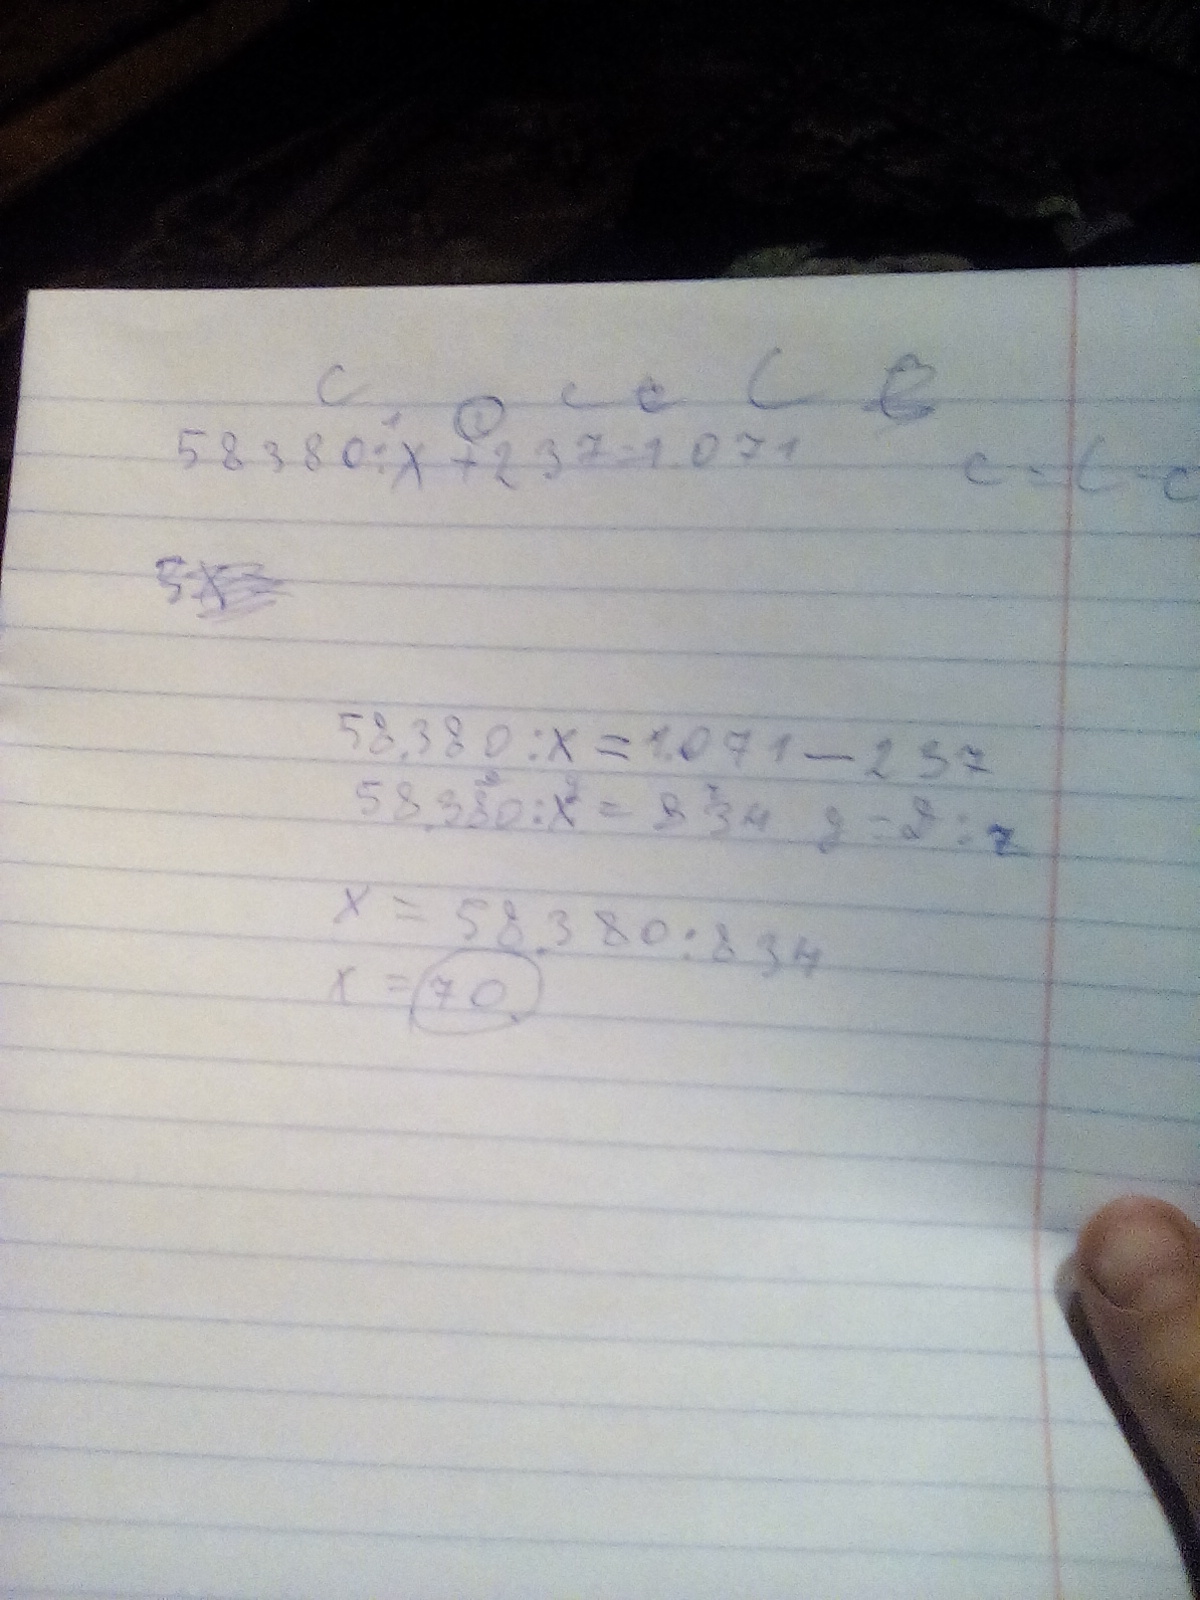 с с с С
58380:x+237=1.071 с = С - с
58.380:x=1.071-237
58.380:x=834 g = 8 : 7
x=58.380:834
x=70